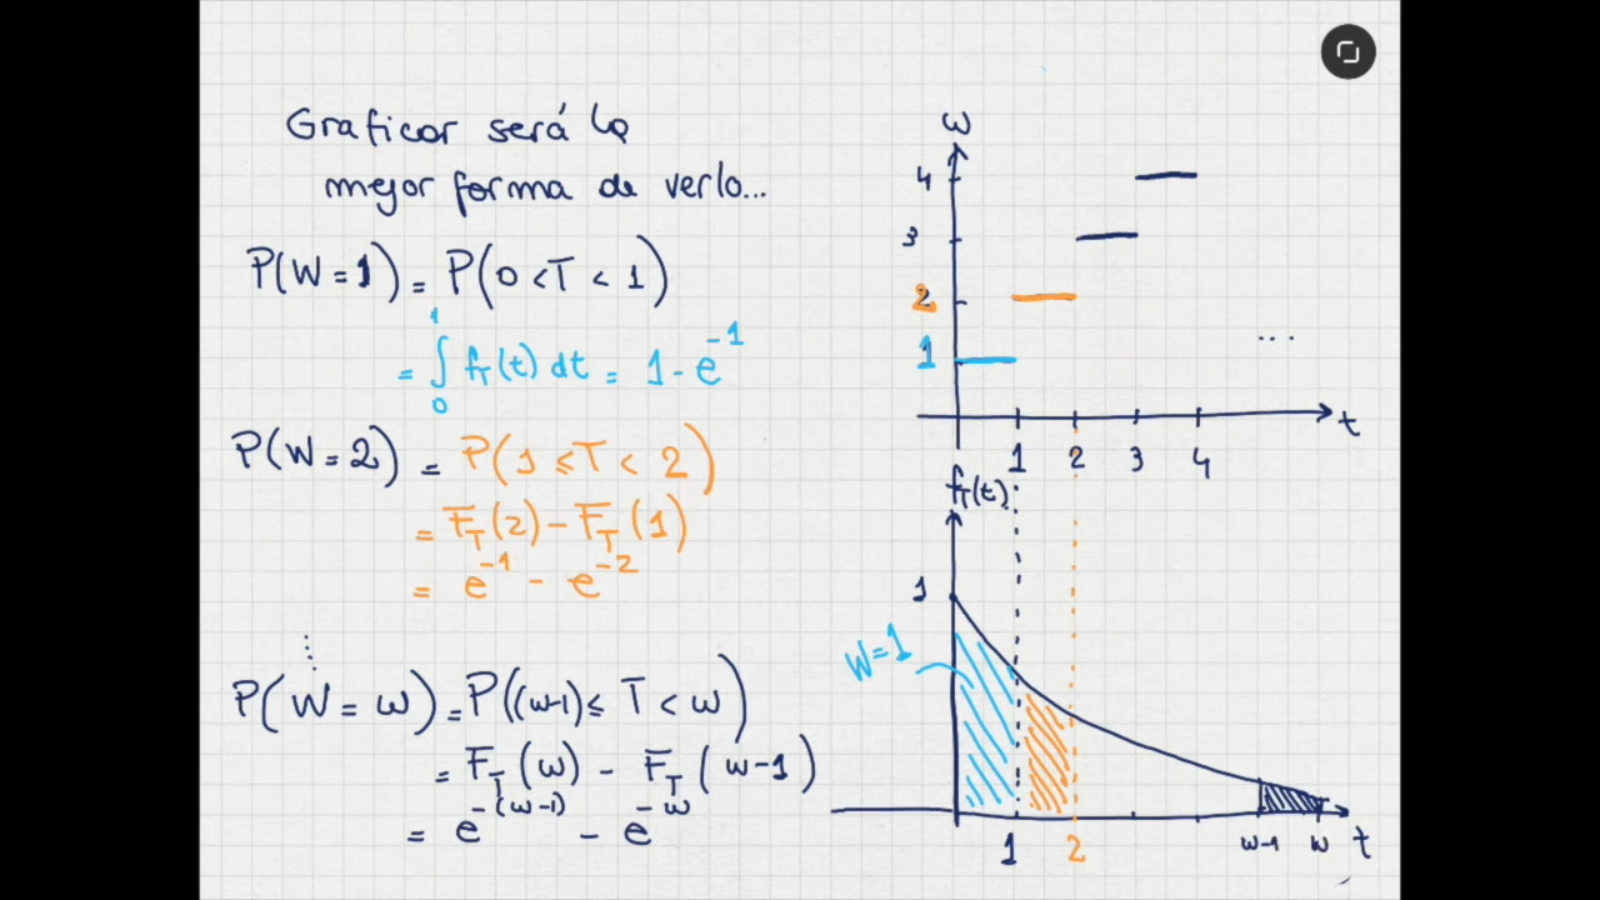 Graficar será la
mejor forma de verlo...
P(W=1) = P(0<T<1)
= ∫₀¹ f_T(t) dt = 1-e^{-1}
P(W=2) = P(1≤T<2)
= F_T(2) - F_T(1)
= e^{-1} - e^{-2}
P(W=ω) = P((ω-1)≤T<ω)
= F_T(ω) - F_T(ω-1)
= e^{-(ω-1)} - e^{-ω}
ω
4
3
2
1
...
t
1 2 3 4
f_T(t)
1
W=1
1 2 ω-1 ω t